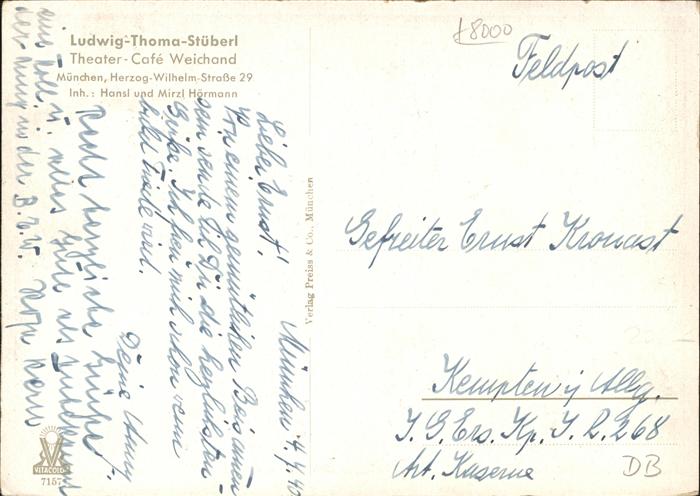 Ludwig-Thoma-Stüberl
Theater-Café Weichand
München, Herzog-Wilhelm-Straße 29
Inh.: Hansl und Mirzl Hörmann
München 4.4.40
Lieber Ernst!
Von einem gemütlichen Beisammen-
sein sende ich Dir die herzlichsten
Grüße. Ich freu mich schon wenn
bald Friede wird.
Deine
Recht herzliche Grüße
und alles Gute
Verlag Preiss & Co., München
VITACOLOR
7157
8000
Feldpost
Gefreiter Ernst Kronast
Kempten i/ Allg.
I. G. Ers. Kp. I. R. 268
Art. Kaserne
DB